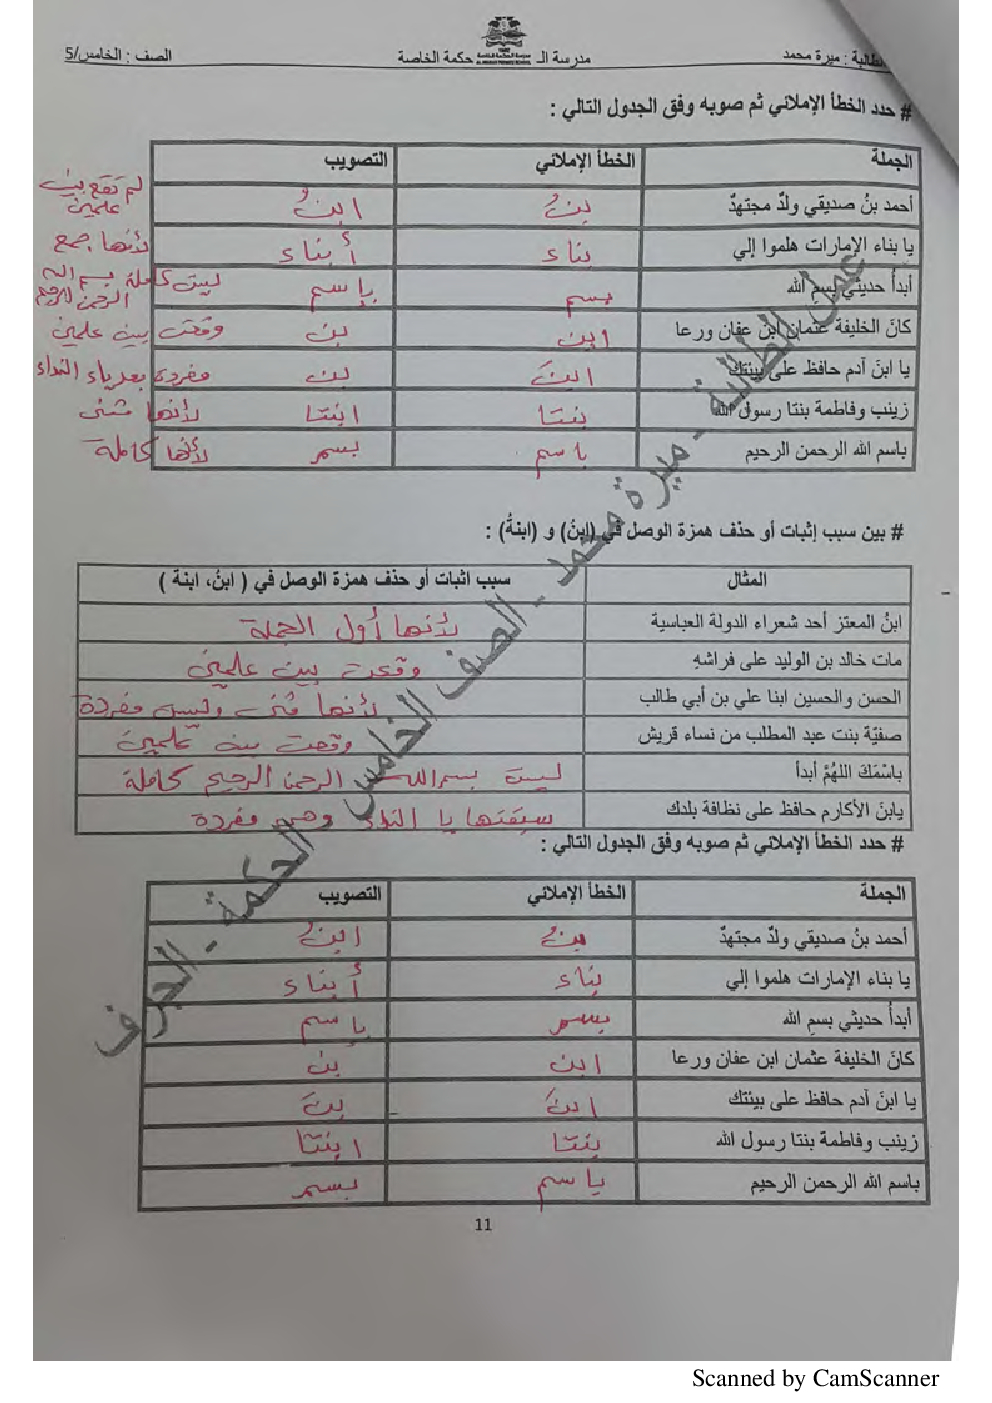 الطالبة : ميرة محمد
مدرسة الـ حكمة الخاصة
الصف : الخامس/5
# حدد الخطأ الإملائي ثم صوبه وفق الجدول التالي :
الجملة الخطأ الإملائي التصويب
أحمد بنُ صديقي ولدٌ مجتهدٌ بنُ ابنُ لم تقع بين علمين
يا بناء الإمارات هلموا إلي بناء أبناء لأنها جمع
أبدأ حديثي بسم الله بسم باسم ليست كاملة بسم الله الرحمن الرحيم
كانَ الخليفة عثمان ابن عفان ورعا ابن بن وقعت بين علمين
يا ابنَ آدم حافظ على بيئتك ابنَ بن مفردة بعد ياء النداء
زينب وفاطمة بنتا رسول الله بنتا ابنتا لأنها مثنى
باسم الله الرحمن الرحيم باسم بسم لأنها كاملة
# بين سبب إثبات أو حذف همزة الوصل في (ابنُ) و (ابنةُ) :
المثال سبب اثبات أو حذف همزة الوصل في ( ابنُ، ابنة )
ابنُ المعتز أحد شعراء الدولة العباسية لأنها أول الجملة
مات خالد بن الوليد على فراشهِ وقعت بين علمين
الحسن والحسين ابنا علي بن أبي طالب لأنها مثنى وليس مفردة
صفيّة بنت عبد المطلب من نساء قريش وقعت بين علمين
باسْمَكَ اللهُمَّ أبدأ ليست بسم الله الرحمن الرحيم كاملة
يابنَ الأكارم حافظ على نظافة بلدك سبقتها يا النداء وهي مفردة
# حدد الخطأ الإملائي ثم صوبه وفق الجدول التالي :
الجملة الخطأ الإملائي التصويب
أحمد بنُ صديقي ولدٌ مجتهدٌ بنُ ابنُ
يا بناء الإمارات هلموا إلي بناء أبناء
أبدأ حديثي بسمِ الله بسم باسم
كانَ الخليفة عثمان ابن عفان ورعا ابن بن
يا ابنَ آدم حافظ على بيئتك ابنَ بنَ
زينب وفاطمة بنتا رسول الله بنتا ابنتا
باسم الله الرحمن الرحيم باسم بسم
عمل الطالبة - ميرة محمد - الصف الخامس الحكمة - الجرف
11
Scanned by CamScanner